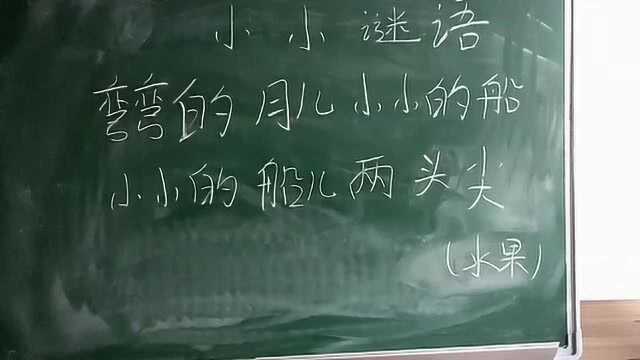 小小谜语
弯弯的月儿小小的船
小小的船儿两头尖
（水果）